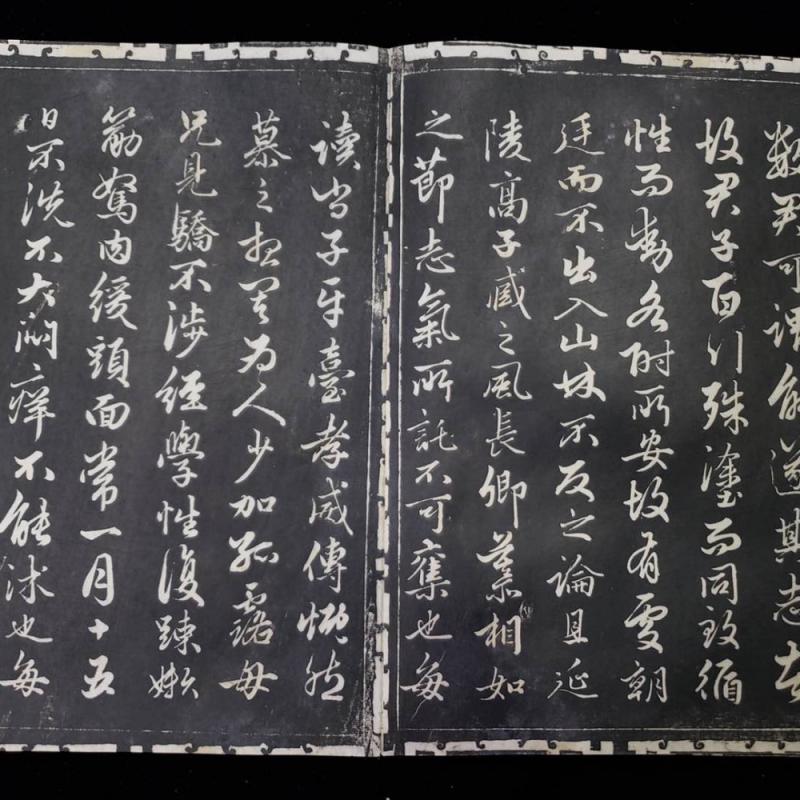 数君可謂能遂其志者
故君子百行殊塗而同致循
性而動各附所安故有處朝
廷而不出入山林不反之論且延
陵高子臧之風長卿慕相如
之節志氣所託不可奪也每
讀尚子平臺孝威傳慨然
慕之想其為人少加孤露母
兄見驕不涉經學性復疎嬾
筋駑肉緩頭面常一月十五
日不洗不大悶癢不能沐也每